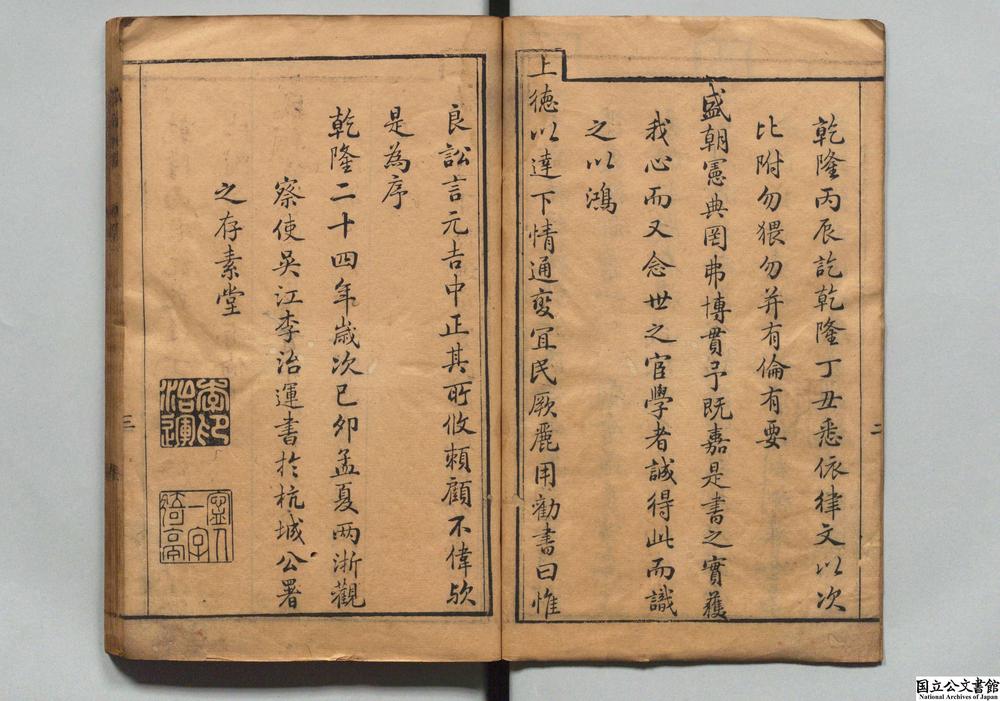 乾隆丙辰訖乾隆丁丑悉依律文以次
比附勿猥勿并有倫有要
盛朝憲典罔弗博貫予既嘉是書之實獲
我心而又念世之宦學者誠得此而識
之以鴻
上徳以達下情通變宜民厥麗用勸書曰惟
二
良訟言元吉中正其所攸頼顧不偉欤
是為序
乾隆二十四年歳次己卯孟夏两浙觀
察使吳江李治運書扵杭城公署
之存素堂
李治運印
一字漪亭
三
国立公文書館
National Archives of Japan